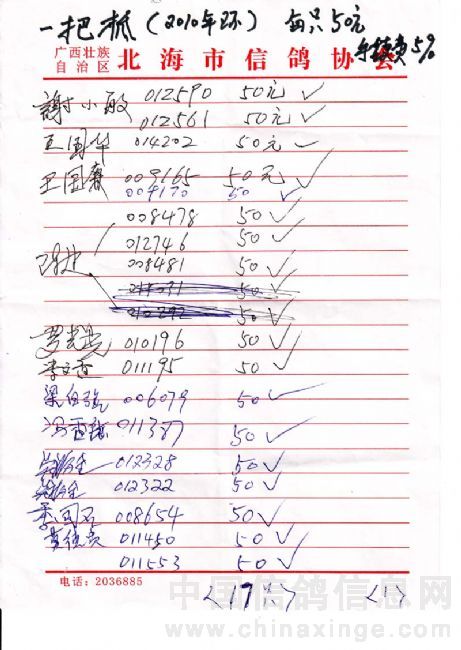 一把抓（2010年环） 每只50元
手续费5%
广西壮族
自治区 北海市信鸽协会
謝小敏 012590 50元✓
012561 50元✓
王国华 014202 50元✓
王国赛 009165 50元✓
009170 50✓
008478 50✓
012746 50✓
008481 50✓
50✓
012392 50✓
010196 50✓
李文香 011195 50✓
梁伯强 006079 50✓
011387 50✓
012328 50✓
012322 50✓
008654 50✓
011450 50✓
011553 50✓
电话：2036885
<17> <1>
中国信鸽信息网
www.chinaxinge.com